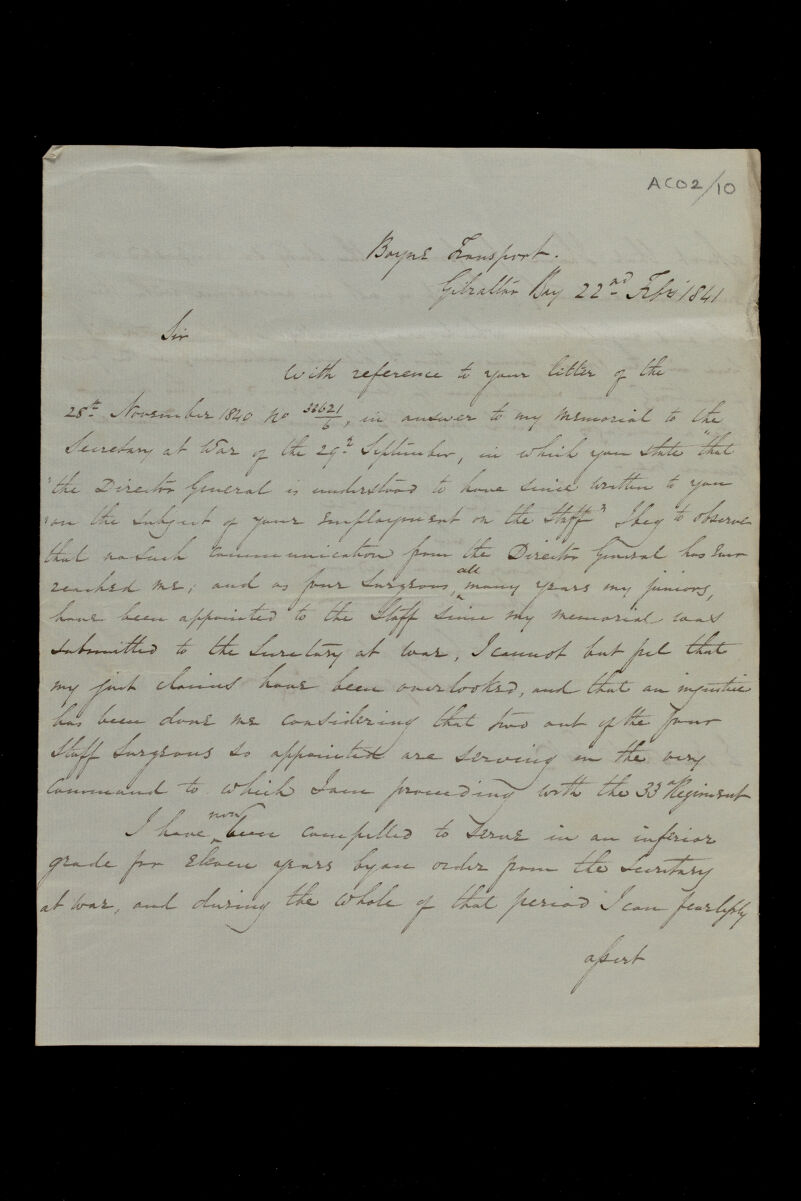 ACO2/10
Boyne Transport.
Gibraltar Bay 22nd Feby 1841
Sir
With reference to your letter of the
28th November 1840 No 33621/6, in answer to my memorial to the
Secretary at War of the 29th September, in which you state "that
"the Director General is understood to have since written to you
"on the subject of your employment on the Staff" I beg to observe
that no such communication from the Director General has ever
reached me; and as four Surgeons, all many years my juniors,
have been appointed to the Staff since my memorial was
submitted to the Secretary at War, I cannot but feel that
my just claims have been overlooked, and that an injustice
has been done me considering that two out of the four
Staff Surgeons so appointed are serving in the very
Command to which I am proceeding with the 33d Regiment
I have now been compelled to serve in an inferior
grade for eleven years by an order from the Secretary
at War, and during the whole of that period I can fearlessly
assert